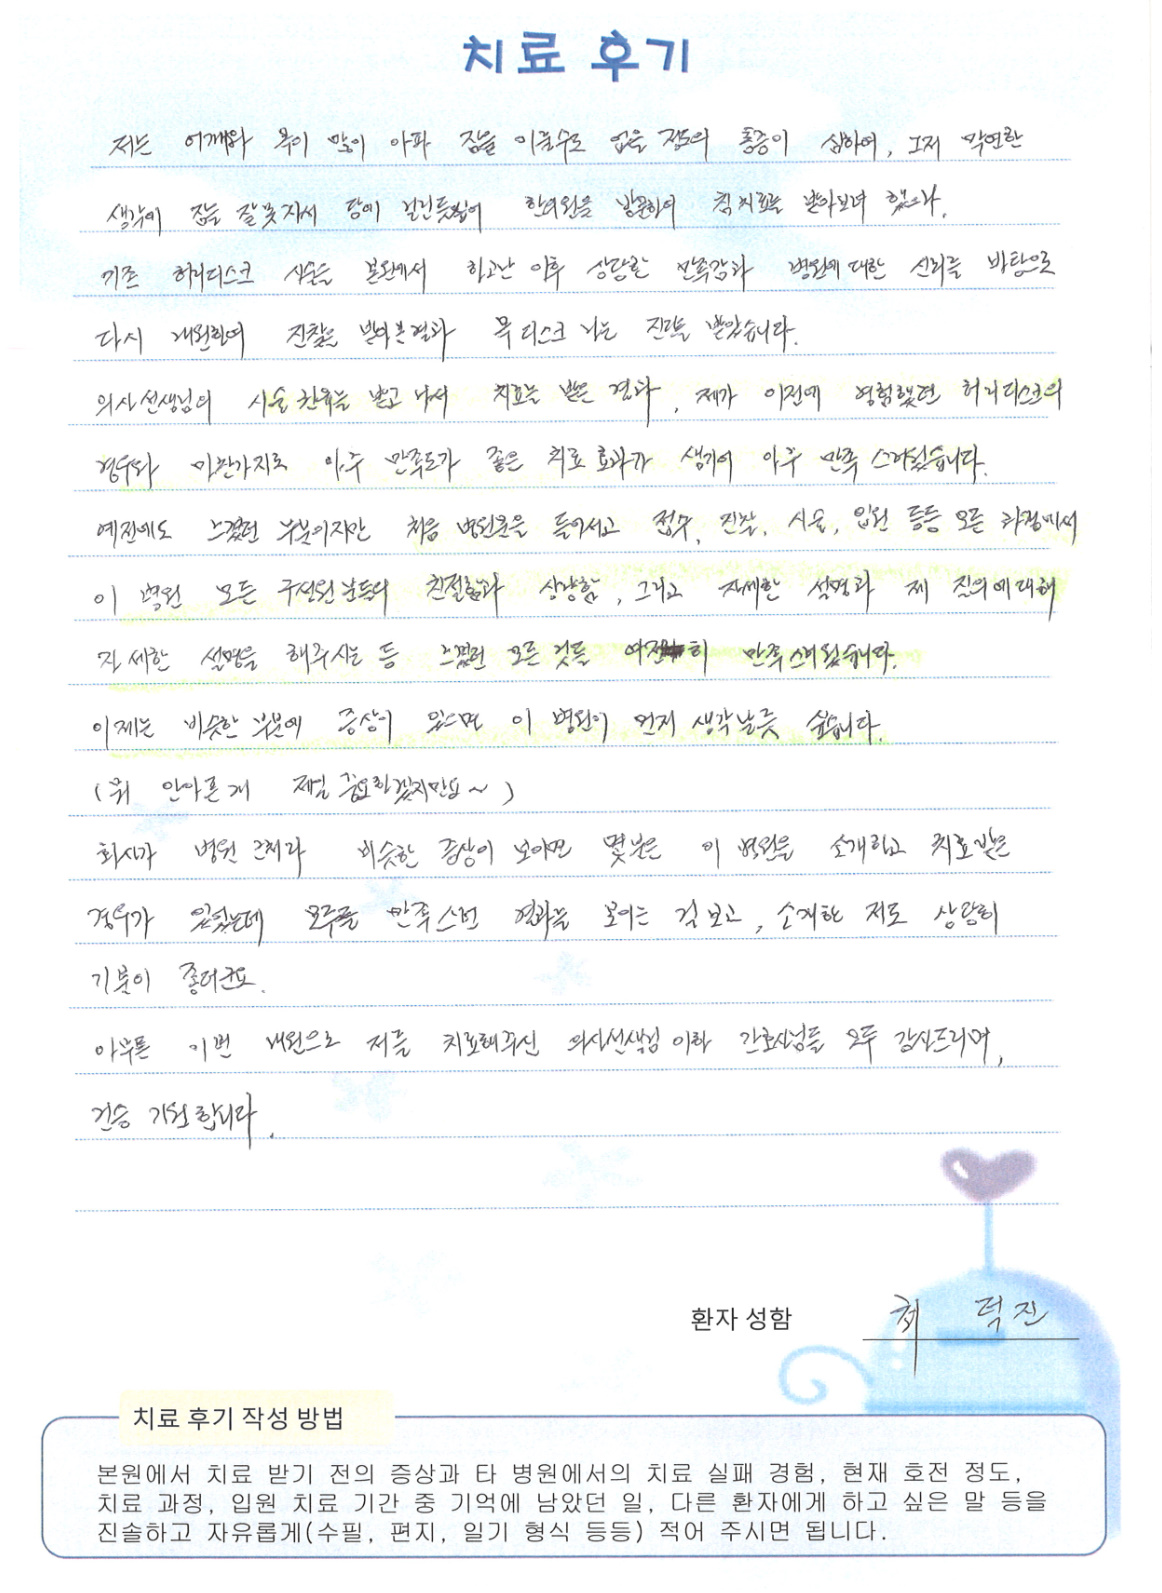 치료 후기
저는 어깨와 목이 많이 아파 잠을 이룰수도 없을 정도의 통증이 심하여, 그저 막연한
생각에 잠을 잘못자서 담에 걸린듯싶어 한의원을 방문하여 침치료를 받아보려 했으나,
기존 허리디스크 시술을 본원에서 하고난 이후 상당한 만족감과 병원에 대한 신뢰를 바탕으로
다시 내원하여 진찰을 받아본결과 목디스크 라는 진단을 받았습니다.
의사선생님의 시술 권유를 받고 나서 치료를 받은 결과, 제가 이전에 경험했던 허리디스크의
경우와 마찬가지로 아주 만족도가 좋은 치료 효과가 생겨서 아주 만족 스러웠습니다.
예전에도 느꼈던 부분이지만 처음 병원문을 들어서고 접수, 진찰, 시술, 입원 등등 모든 과정에서
이 병원 모든 구성원 분들의 친절함과 상냥함, 그리고 자세한 설명과 제 질의에 대해
자세한 설명을 해주시는 등 느꼈던 모든 것들 여전히 만족스러웠습니다.
이제는 비슷한 부분에 증상이 있으면 이 병원이 먼저 생각날듯 싶습니다.
(뭐 안아픈게 제일 중요하겠지만요~)
회사가 병원 근처라 비슷한 증상이 보이면 몇분은 이 병원을 소개하고 치료받은
경우가 있었는데 모두들 만족스런 결과를 보이는 걸 보고, 소개한 저도 상당히
기분이 좋더군요.
아무튼 이번 내원으로 저를 치료해주신 의사선생님 이하 간호사님들 모두 감사드리며,
건승 기원합니다.
환자 성함 최 덕진
치료 후기 작성 방법
본원에서 치료 받기 전의 증상과 타 병원에서의 치료 실패 경험, 현재 호전 정도,
치료 과정, 입원 치료 기간 중 기억에 남았던 일, 다른 환자에게 하고 싶은 말 등을
진솔하고 자유롭게(수필, 편지, 일기 형식 등등) 적어 주시면 됩니다.